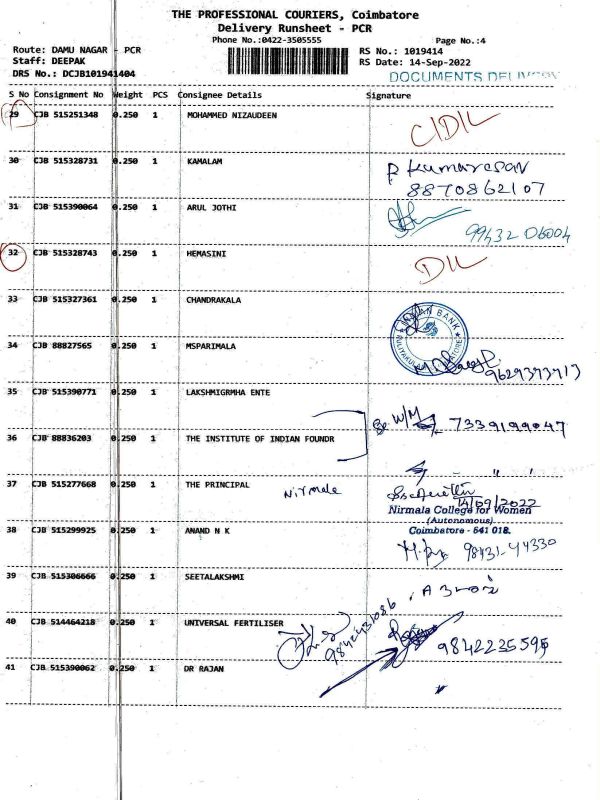 THE PROFESSIONAL COURIERS, Coimbatore
Delivery Runsheet - PCR
Phone No.:0422-3505555
Page No.:4
Route: DAMU NAGAR - PCR
RS No.: 1019414
Staff: DEEPAK
RS Date: 14-Sep-2022
DRS No.: DCJB101941404
DOCUMENTS DELIVERY
S No Consignment No Weight PCS Consignee Details Signature
29 CJB 515251348 0.250 1 MOHAMMED NIZAUDEEN
C/DIL
30 CJB 515328731 0.250 1 KAMALAM
P Kumaresan
8870862107
31 CJB 515390064 0.250 1 ARUL JOTHI
99432 06004
32 CJB 515328743 0.250 1 HEMASINI
DIL
33 CJB 515327361 0.250 1 CHANDRAKALA
INDIAN BANK
34 CJB 88827565 0.250 1 MSPARIMALA
35 CJB 515390771 0.250 1 LAKSHMIGRMHA ENTE
W/M 7339199047
36 CJB 88836203 0.250 1 THE INSTITUTE OF INDIAN FOUNDR
" "
37 CJB 515277668 0.250 1 THE PRINCIPAL
Nirmale
14/09/2022
Nirmala College for Women
(Autonomous)
Coimbatore - 641 018.
38 CJB 515299925 0.250 1 ANAND N K
98431-44330
39 CJB 515306666 0.250 1 SEETALAKSHMI
40 CJB 514464218 0.250 1 UNIVERSAL FERTILISER
9842431086
9842235595
41 CJB 515390062 0.250 1 DR RAJAN